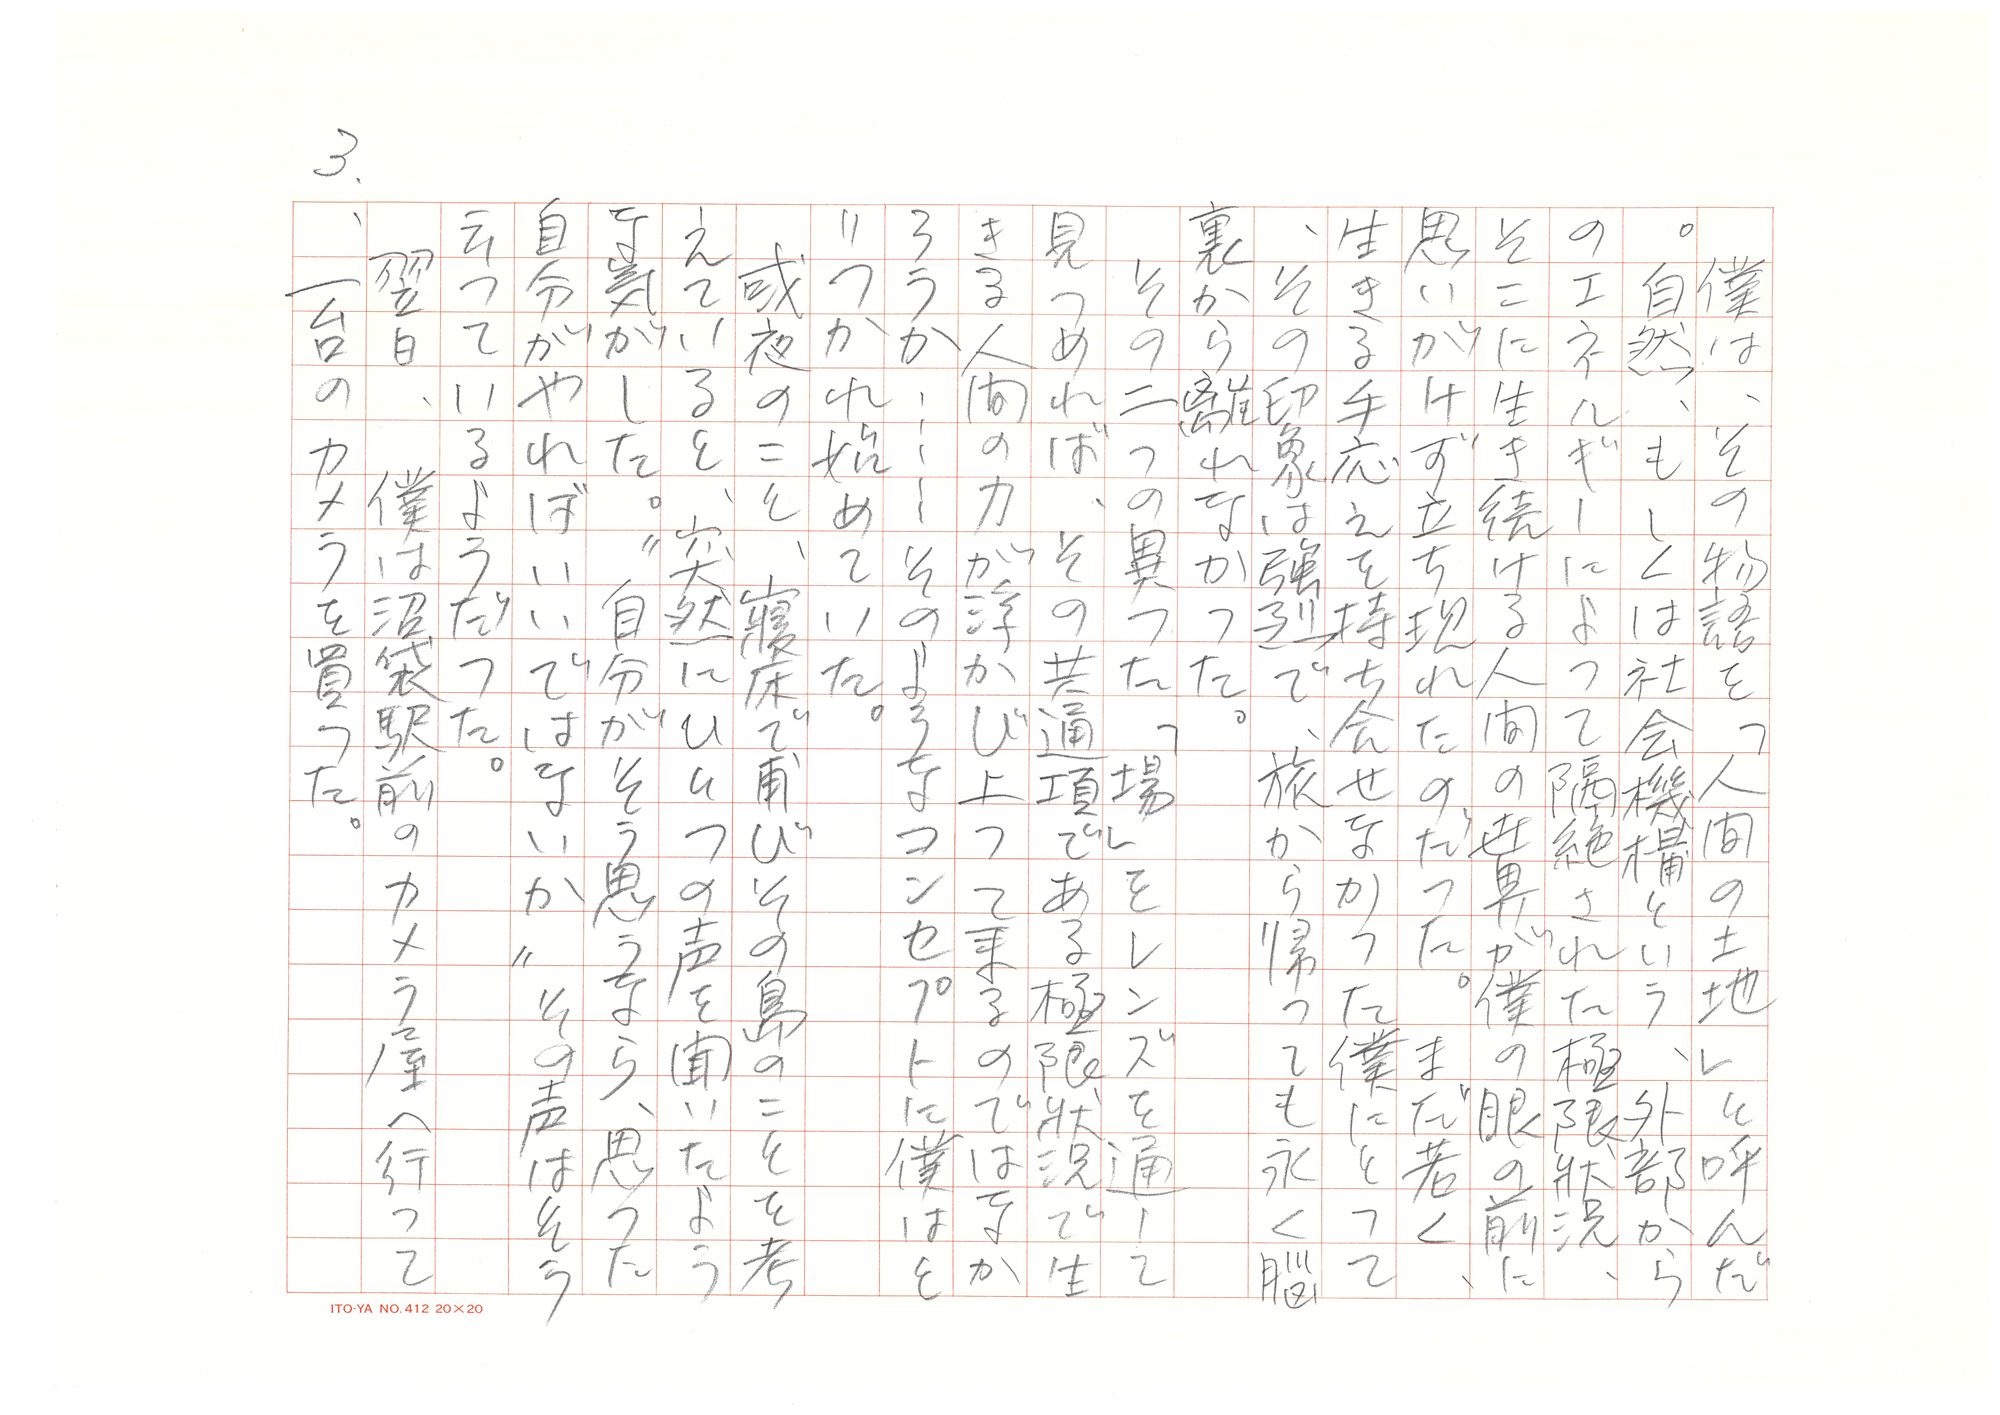 3.
僕は、その物語を「人間の土地」と呼んだ
。自然、もしくは社会機構という、外部から
のエネルギーによって隔絶された極限状況、
そこに生き続ける人間の世界が僕の眼の前に
思いがけず立ち現れたのだった。まだ若く、
生きる手応えを持ち合せなかった僕にとって
、その印象は強烈で、旅から帰っても永く脳
裏から離れなかった。
その二つの異った「場」をレンズを通して
見つめれば、その共通項である極限状況で生
きる人間の力が浮かび上って来るのではなか
ろうか……そのようなコンセプトに僕はと
りつかれ始めていた。
或夜のこと、寝床で再びその島のことを考
えていると、突然にひとつの声を聞いたよう
な気がした。〝自分がそう思うなら、思った
自分がやればいいではないか〟その声はそう
云っているようだった。
翌日、僕は沼袋駅前のカメラ屋へ行って
、一台のカメラを買った。
ITO-YA NO.412 20×20